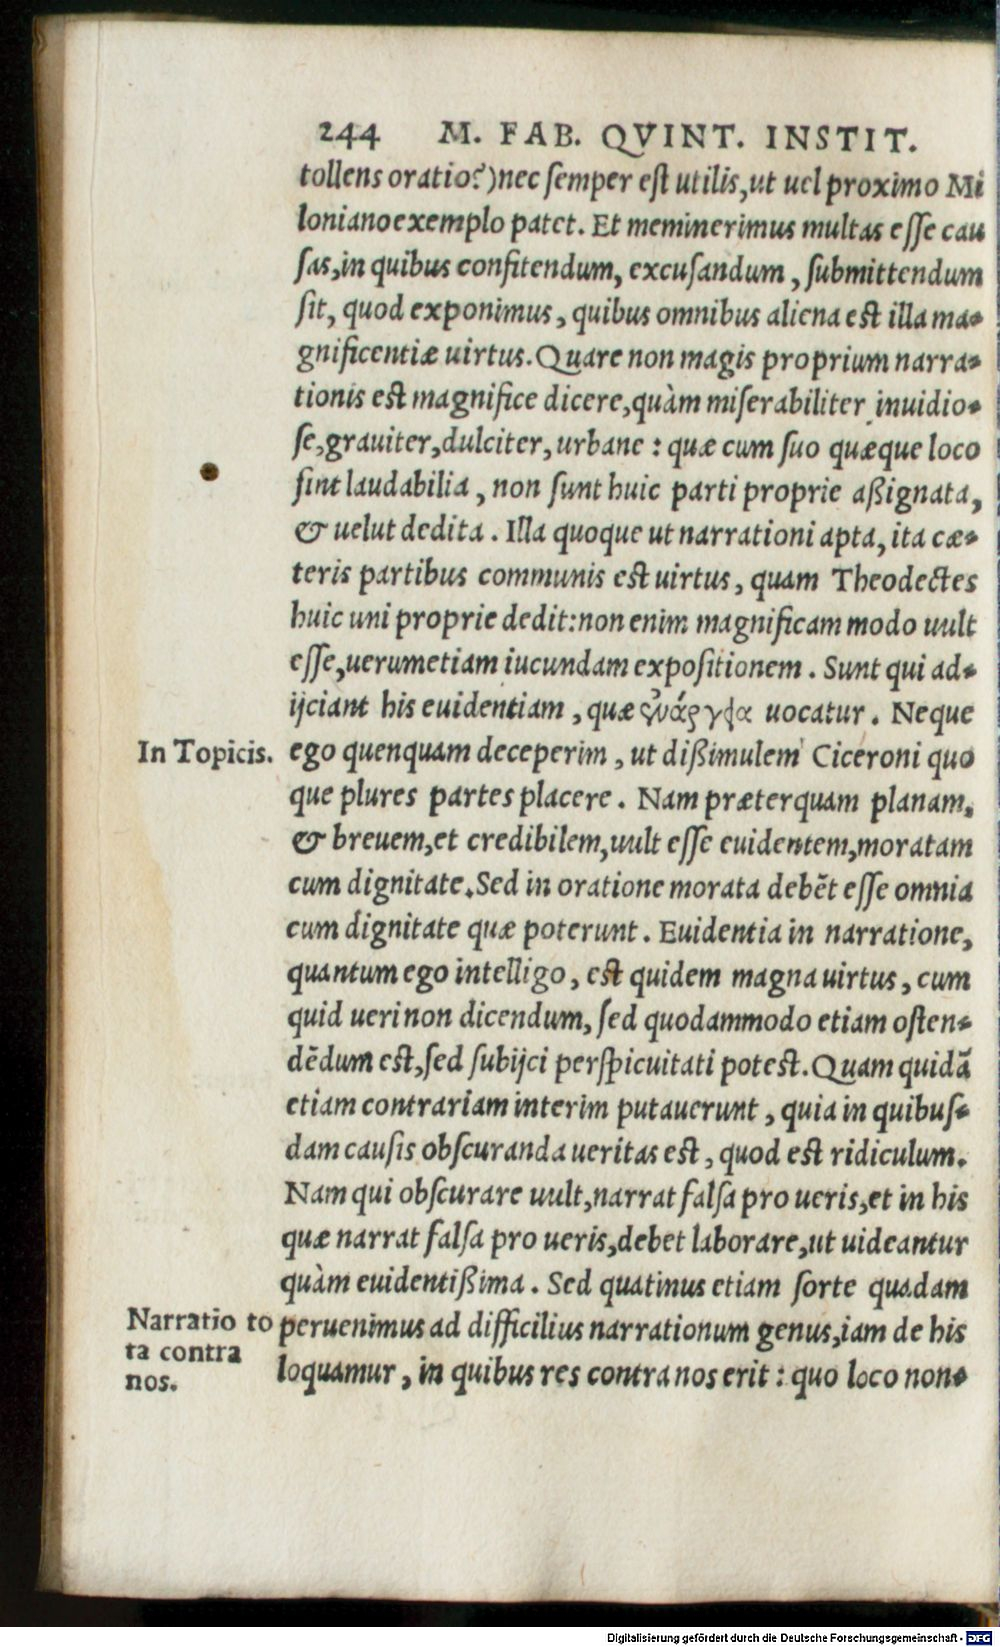 244 M. FAB. QVINT. INSTIT.
tollens oratio?)nec ſemper eſt utilis,ut uel proximo Mi
loniano exemplo patet. Et meminerimus multas eſſe cau
ſas,in quibus confitendum, excuſandum, ſubmittendum
ſit, quod exponimus, quibus omnibus aliena eſt illa ma-
gnificentiæ uirtus. Quare non magis proprium narra-
tionis eſt magnifice dicere,quàm miſerabiliter inuidio-
ſe,grauiter,dulciter, urbane : quæ cum ſuo quæque loco
ſint laudabilia, non ſunt huic parti proprie aßignata,
& uelut dedita. Illa quoque ut narrationi apta, ita cæ-
teris partibus communis eſt uirtus, quam Theodectes
huic uni proprie dedit:non enim magnificam modo uult
eſſe,uerumetiam iucundam expoſitionem. Sunt qui ad-
ijciant his euidentiam, quæ ἐνάργεια uocatur. Neque
In Topicis.
ego quenquam deceperim, ut dißimulem Ciceroni quo
que plures partes placere. Nam præterquam planam,
& breuem,et credibilem,uult eſſe euidentem,moratam
cum dignitate.Sed in oratione morata debēt eſſe omnia
cum dignitate quæ poterunt. Euidentia in narratione,
quantum ego intelligo, eſt quidem magna uirtus, cum
quid ueri non dicendum, ſed quodammodo etiam oſten-
dēdum eſt,ſed ſubijci perſpicuitati poteſt. Quam quidā
etiam contrariam interim putauerunt, quia in quibuſ-
dam cauſis obſcuranda ueritas eſt, quod eſt ridiculum.
Nam qui obſcurare uult,narrat falſa pro ueris,et in his
quæ narrat falſa pro ueris,debet laborare,ut uideantur
quàm euidentißima. Sed quatinus etiam ſorte quadam
Narratio to
ta contra
nos.
peruenimus ad difficilius narrationum genus,iam de his
loquamur, in quibus res contra nos erit : quo loco non-
Digitalisierung gefördert durch die Deutsche Forschungsgemeinschaft - DFG